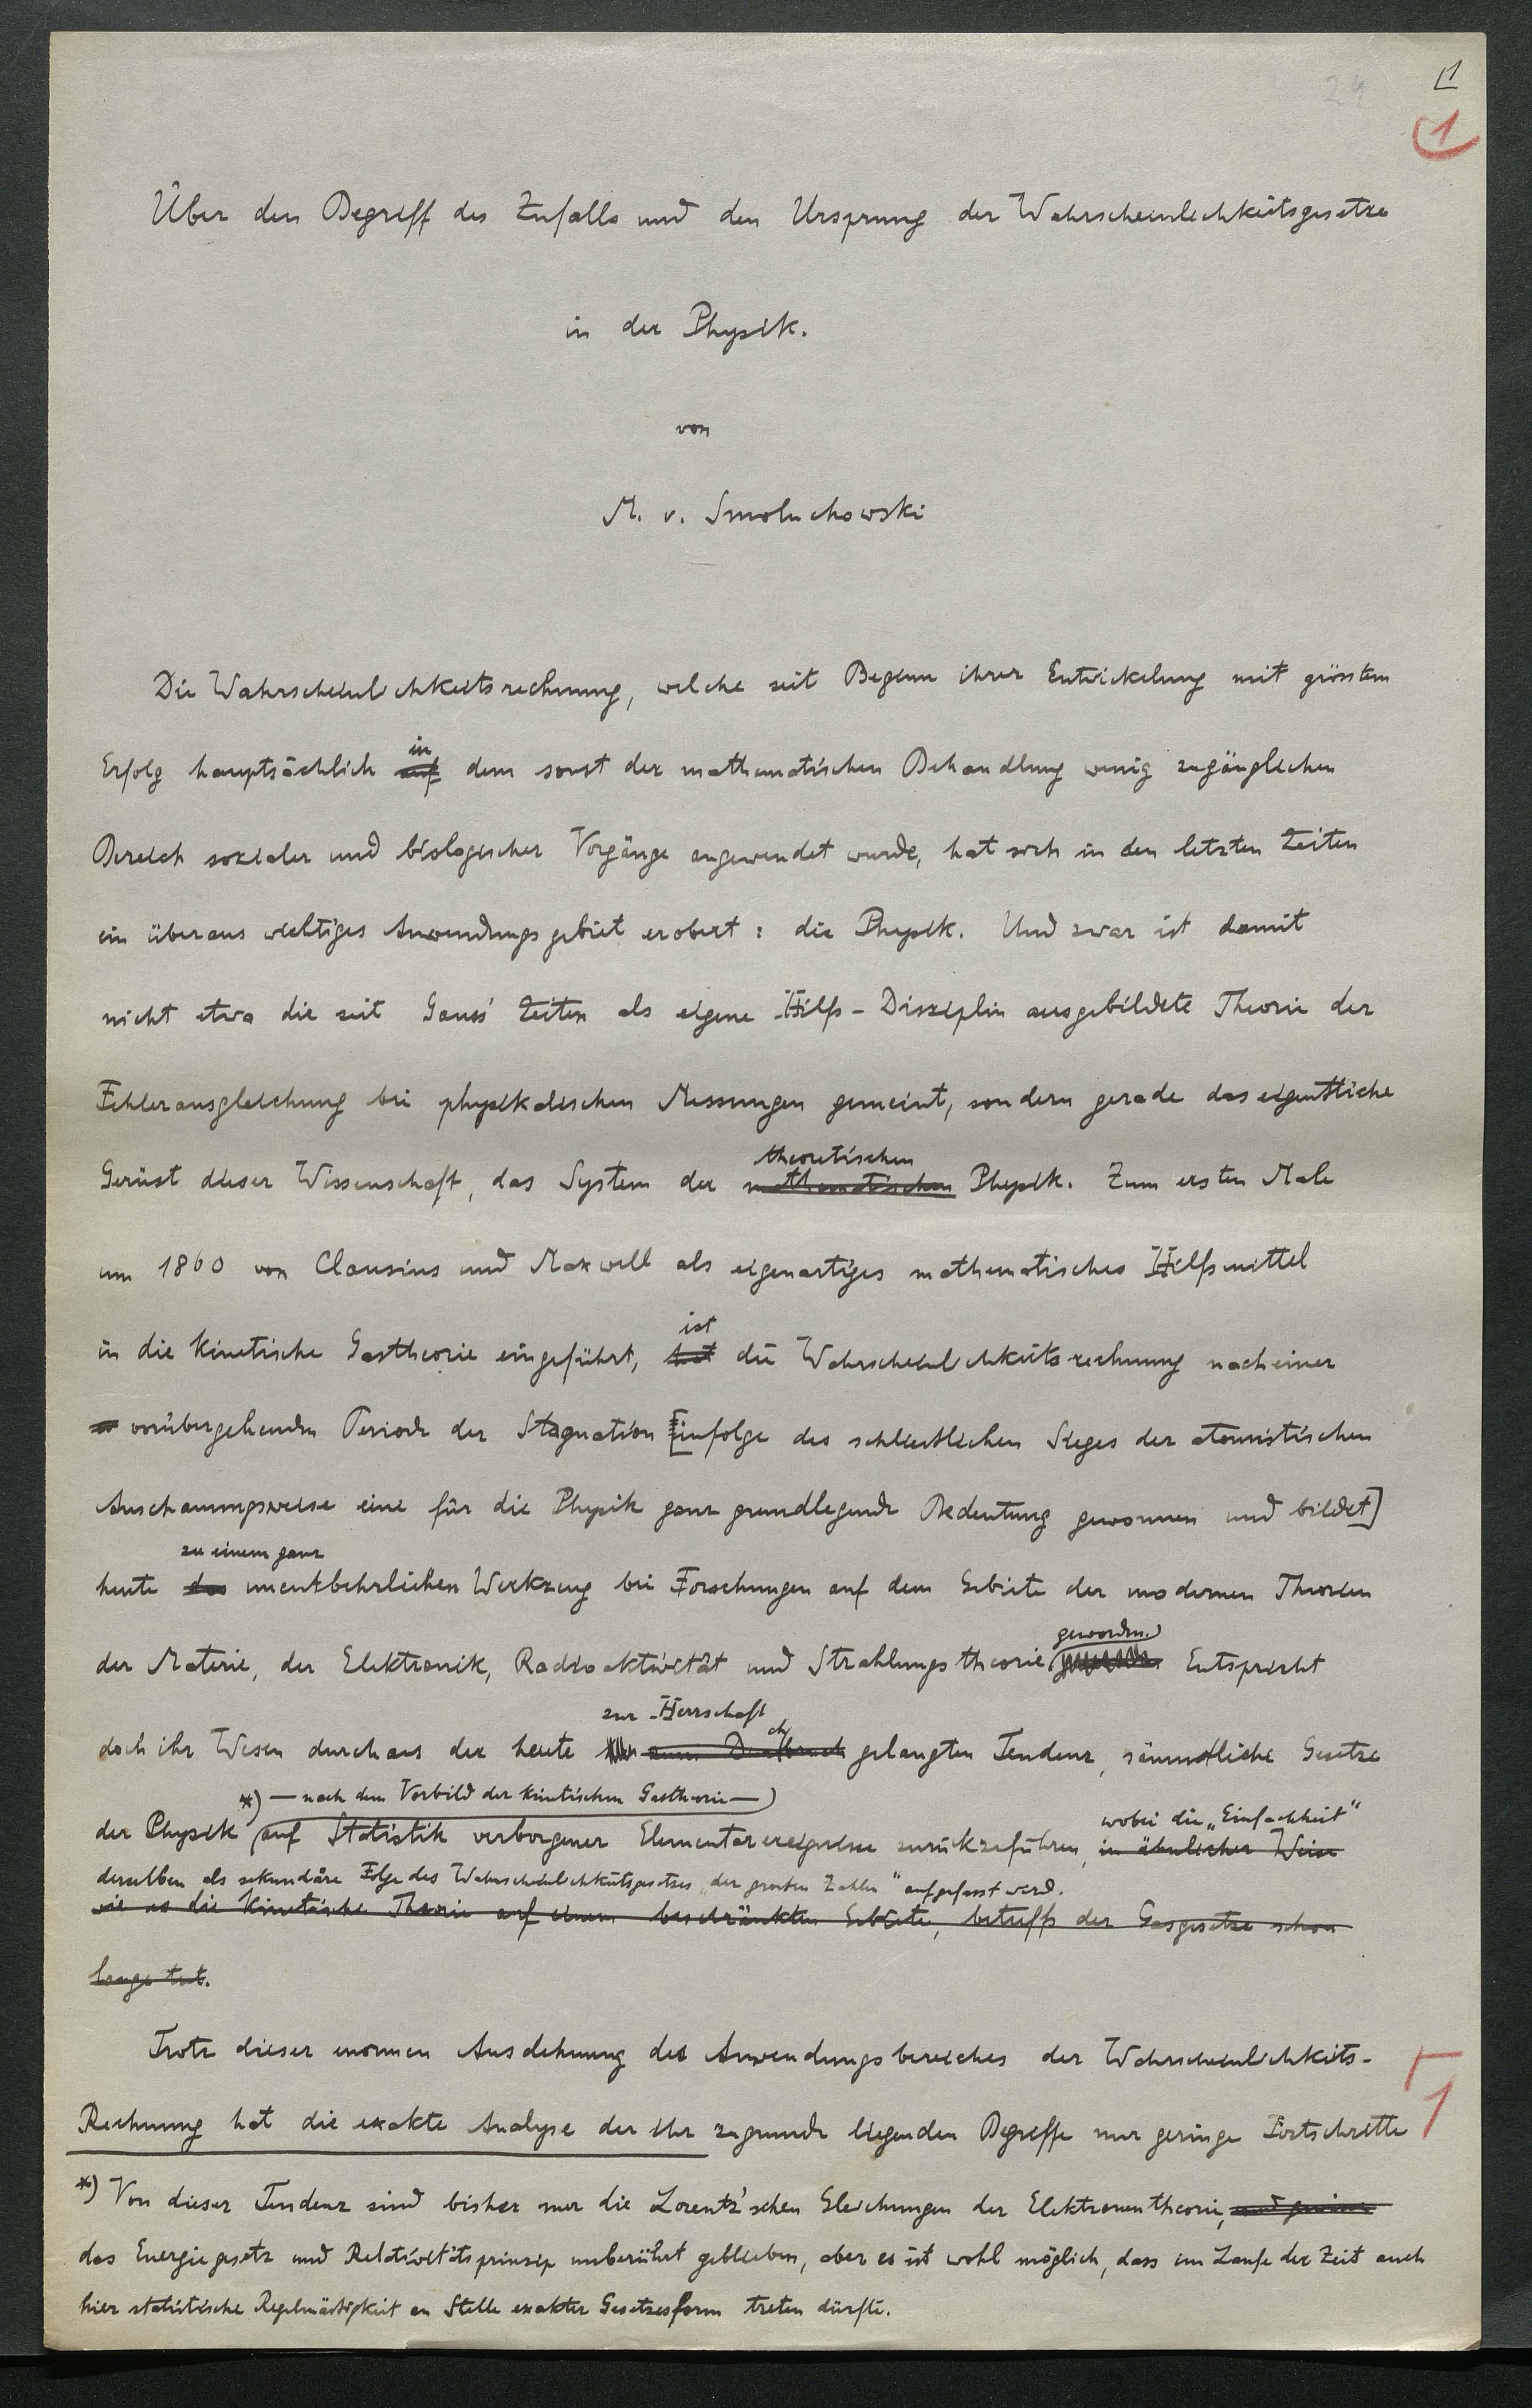 24
1
1
Über den Begriff des Zufalls und den Ursprung der Wahrscheinlichkeitsgesetze
in der Physik.
von
M. v. Smoluchowski
Die Wahrscheinlichkeitsrechnung, welche seit Beginn ihrer Entwickelung mit grösstem
in
Erfolg hauptsächlich auf dem sonst der mathematischen Behandlung wenig zugänglichen
Bereich sozialer und biologischer Vorgänge angewendet wurde, hat sich in den letzten Zeiten
ein überaus wichtiges Anwendungsgebiet erobert: die Physik. Und zwar ist damit
nicht etwa die seit Gauss' Zeiten als eigene Hilfs-Disziplin ausgebildete Theorie der
Fehlerausgleichung bei physikalischen Messungen gemeint, sondern gerade das eigentliche
theoretischen
Gerüst dieser Wissenschaft, das System der mathematischen Physik. Zum ersten Male
um 1860 von Clausius und Maxwell als eigenartiges mathematisches Hilfsmittel
ist
in die kinetische Gastheorie eingeführt, hat die Wahrscheinlichkeitsrechnung nach einer
vorübergehenden Periode der Stagnation [infolge des schliesslichen Sieges der atomistischen
Anschauungsweise eine für die Physik ganz grundlegende Bedeutung gewonnen und bildet]
zu einem ganz
heute das unentbehrlichen Werkzeug bei Forschungen auf dem Gebiete der modernen Theorien
geworden.
der Materie, der Elektronik, Radioaktivität und Strahlungstheorie Entspricht
zur Herrschaft
doch ihr Wesen durchaus der heute zum Durchbruch gelangten Tendenz, sämmtliche Gesetze
*) — nach dem Vorbild der kinetischen Gastheorie —
wobei die „Einfachheit“
der Physik auf Statistik verborgener Elementarereignisse zurückzuführen, in ähnlicher Weise
derselben als sekundäre Folge des Wahrscheinlichkeitsgesetzes „der grossen Zahlen“ aufgefasst wird.
wie es die kinetische Theorie auf einem beschränkten Gebiete, betreffs der Gasgesetze schon
lange tut.
Trotz dieser enormen Ausdehnung des Anwendungsbereiches der Wahrscheinlichkeits-
1
Rechnung hat die exakte Analyse der ihr zugrunde liegenden Begriffe nur geringe Fortschritte
*) Von dieser Tendenz sind bisher nur die Lorentz'schen Gleichungen der Elektronentheorie,
das Energiegesetz und Relativitätsprinzip unberührt geblieben, aber es ist wohl möglich, dass im Laufe der Zeit auch
hier statistische Regelmässigkeit an Stelle exakter Gesetzesform treten dürfte.